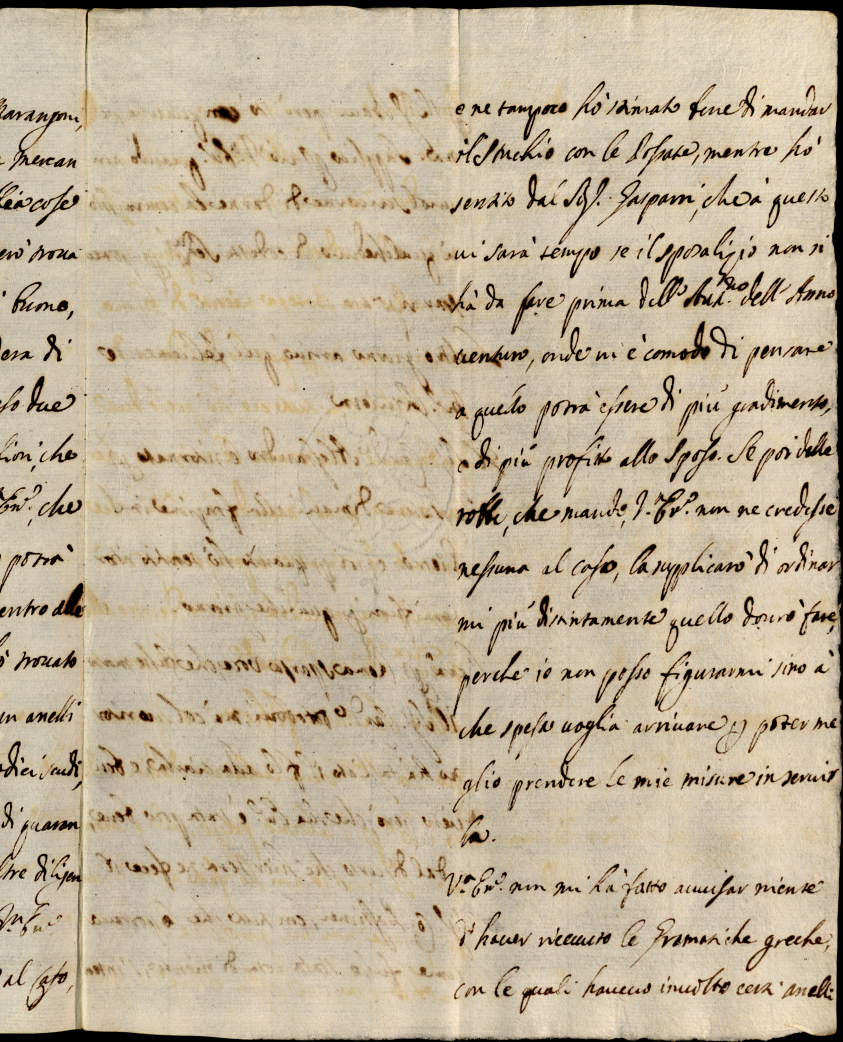 Marangoni,
mercan
cose
trova
buono,
era di
so due
fiori, che
che
potrà
entro alle
trovato
un anelli
dici scudi,
di quaran
tre diligen
al caso,
e ne tampoco hò stimato bene di mandar
il Stuchio con le Possate, mentre hò
sentito dal Sig.r Gasparri, che à questo
ui sarà tempo se il sposalizio non si
hà da fare prima dell' dell' Anno
uenturo, onde ui è comodo di pensare
a quello potrà essere di più gradimento,
e di più profitto allo Sposo. Se poi delle
robbe, che mando, V.a Em.a non ne credesse
nessuna al caso, la supplicarò di ordinar
mi più distintamente quello dourò fare,
perche io non posso figurarmi sino à
che spesa uoglia arriuare p poter me
glio prendere le mie misure in seruir
la.
V.a Em.a non mi hà fatto auuisar niente
d' hauer riceuuto le Gramatiche greche,
con le quali haueuo inuolto certi anelli